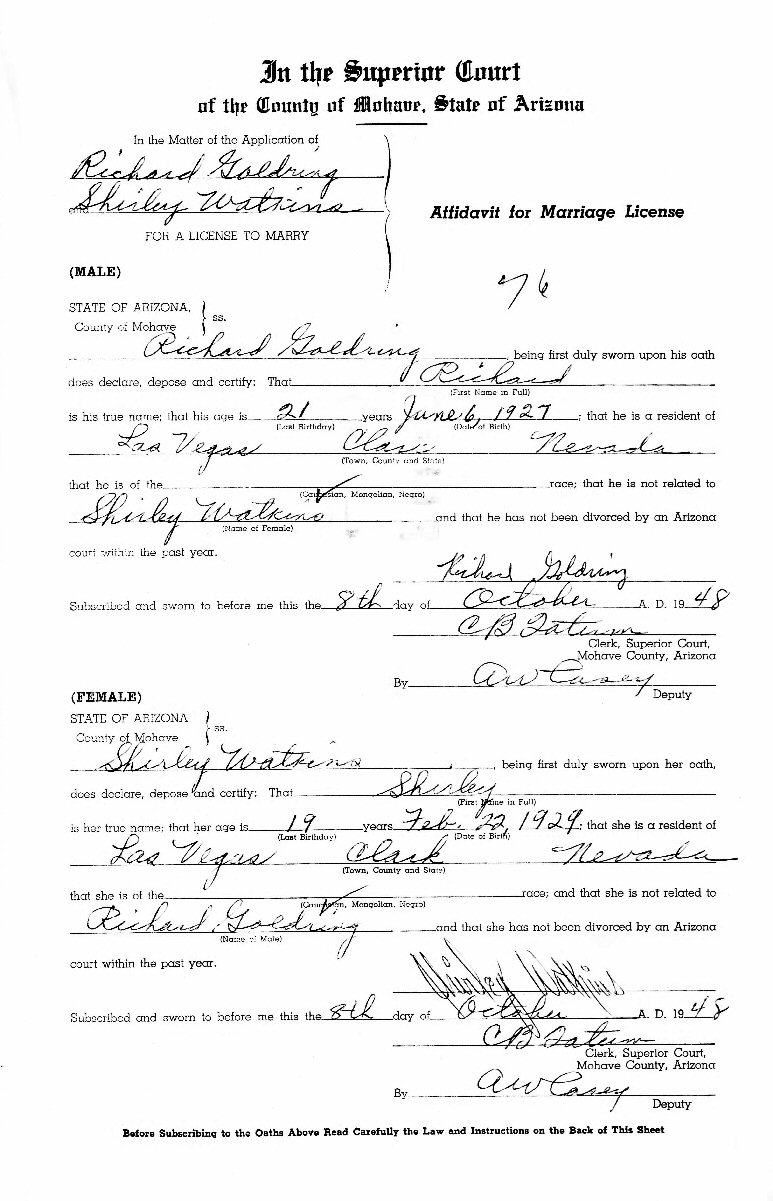 In the Superior Court
of the County of Mohave, State of Arizona
In the Matter of the Application of
Richard Goldring
and Shirley Watkins
FOR A LICENSE TO MARRY
Affidavit for Marriage License
76
(MALE)
STATE OF ARIZONA,
County of Mohave
ss.
Richard Goldring, being first duly sworn upon his oath
does declare, depose and certify: That Richard
(First Name in Full)
is his true name; that his age is 21 years June 6, 1927; that he is a resident of
(Last Birthday) (Date of Birth)
Las Vegas Clark Nevada
(Town, County and State)
that he is of the race; that he is not related to
(Caucasian, Mongolian, Negro)
Shirley Watkins and that he has not been divorced by an Arizona
(Name of Female)
court within the past year.
Richard Goldring
Subscribed and sworn to before me this the 8th day of October A. D. 1948
CB Tatum
Clerk, Superior Court,
Mohave County, Arizona
By AW Casey
Deputy
(FEMALE)
STATE OF ARIZONA
County of Mohave
ss.
Shirley Watkins, being first duly sworn upon her oath,
does declare, depose and certify: That Shirley
(First Name in Full)
is her true name; that her age is 19 years Feb. 22, 1929; that she is a resident of
(Last Birthday) (Date of Birth)
Las Vegas Clark Nevada
(Town, County and State)
that she is of the race; and that she is not related to
(Caucasian, Mongolian, Negro)
Richard Goldring and that she has not been divorced by an Arizona
(Name of Male)
court within the past year.
Shirley Watkins
Subscribed and sworn to before me this the 8th day of October A. D. 1948
CB Tatum
Clerk, Superior Court,
Mohave County, Arizona
By AW Casey
Deputy
Before Subscribing to the Oaths Above Read Carefully the Law and Instructions on the Back of This Sheet